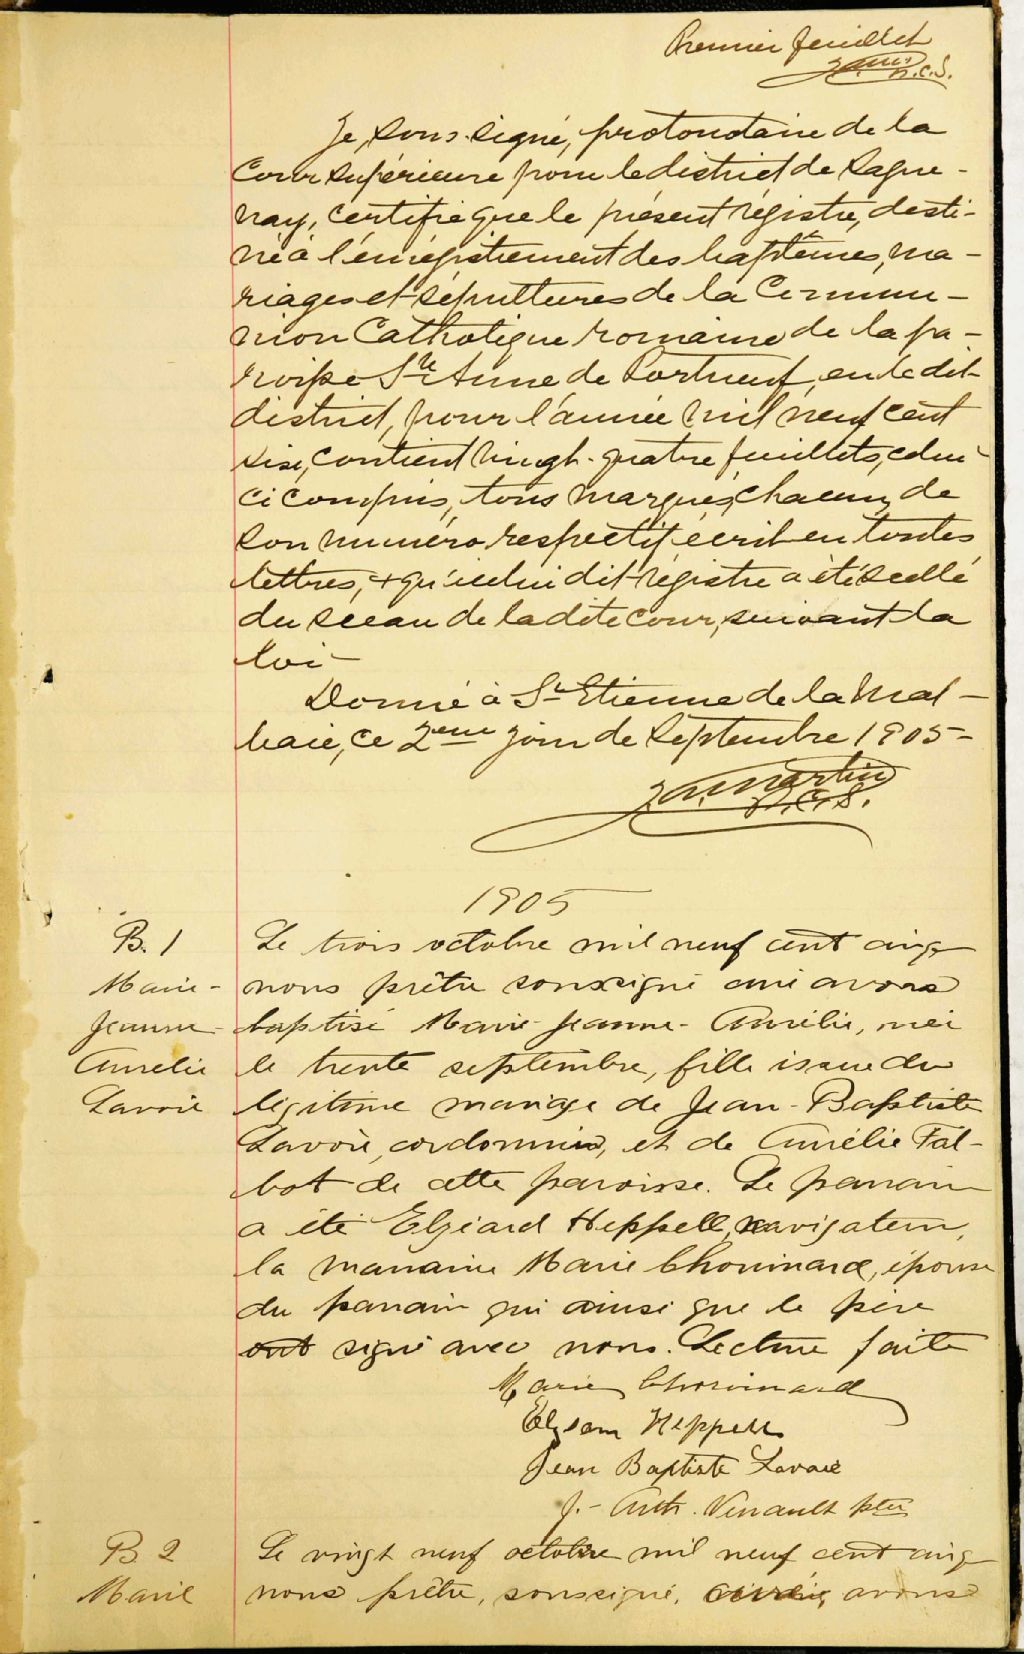 Premier feuillet
J.A.M. P.C.S.
Je, sous-signé, protonotaire de la
Cour supérieure pour le district de Sague-
nay, certifie que le présent régistre, desti-
né à l'énrégistrement des baptêmes, ma-
riages et sépultures de la Commu-
nion Catholique romaine de la pa-
roisse Ste Anne de Portneuf, en le dit
district, pour l'année mil neuf cent
six, contient vingt-quatre feuillets, celui-
ci compris, tous marqués, chacun, de
son numéro respectif écrit en toutes
lettres, & qu'icelui dit régistre a été scellé
du sceau de la dite cour, suivant la
loi-
Donné à St Etienne de la Mal-
baie, ce 2eme jour de septembre 1905-
J.A. Martin
P.C.S.
1905
B. 1
Marie-
Jeanne-
Aurélie
Lavoie
Le trois octobre mil neuf cent cinq
nous prêtre soussigné curé avons
baptisé Marie-Jeanne-Aurélie, née
le trente septembre, fille issue du
légitime mariage de Jean-Baptiste
Lavoie, cordonnier, et de Aurélie Tal-
bot de cette paroisse. Le parrain
a été Elzéard Heppell, navigateur,
la marraine Marie Chouinard, épouse
du parrain qui ainsi que le père
ont signé avec nous. Lecture faite
Marie Chouinard
Elzear Heppell
Jean Baptiste Lavoie
J.-Arth. Ptre
B 2
Marie
Le vingt neuf octobre mil neuf cent cinq
nous prêtre, soussigné, avons